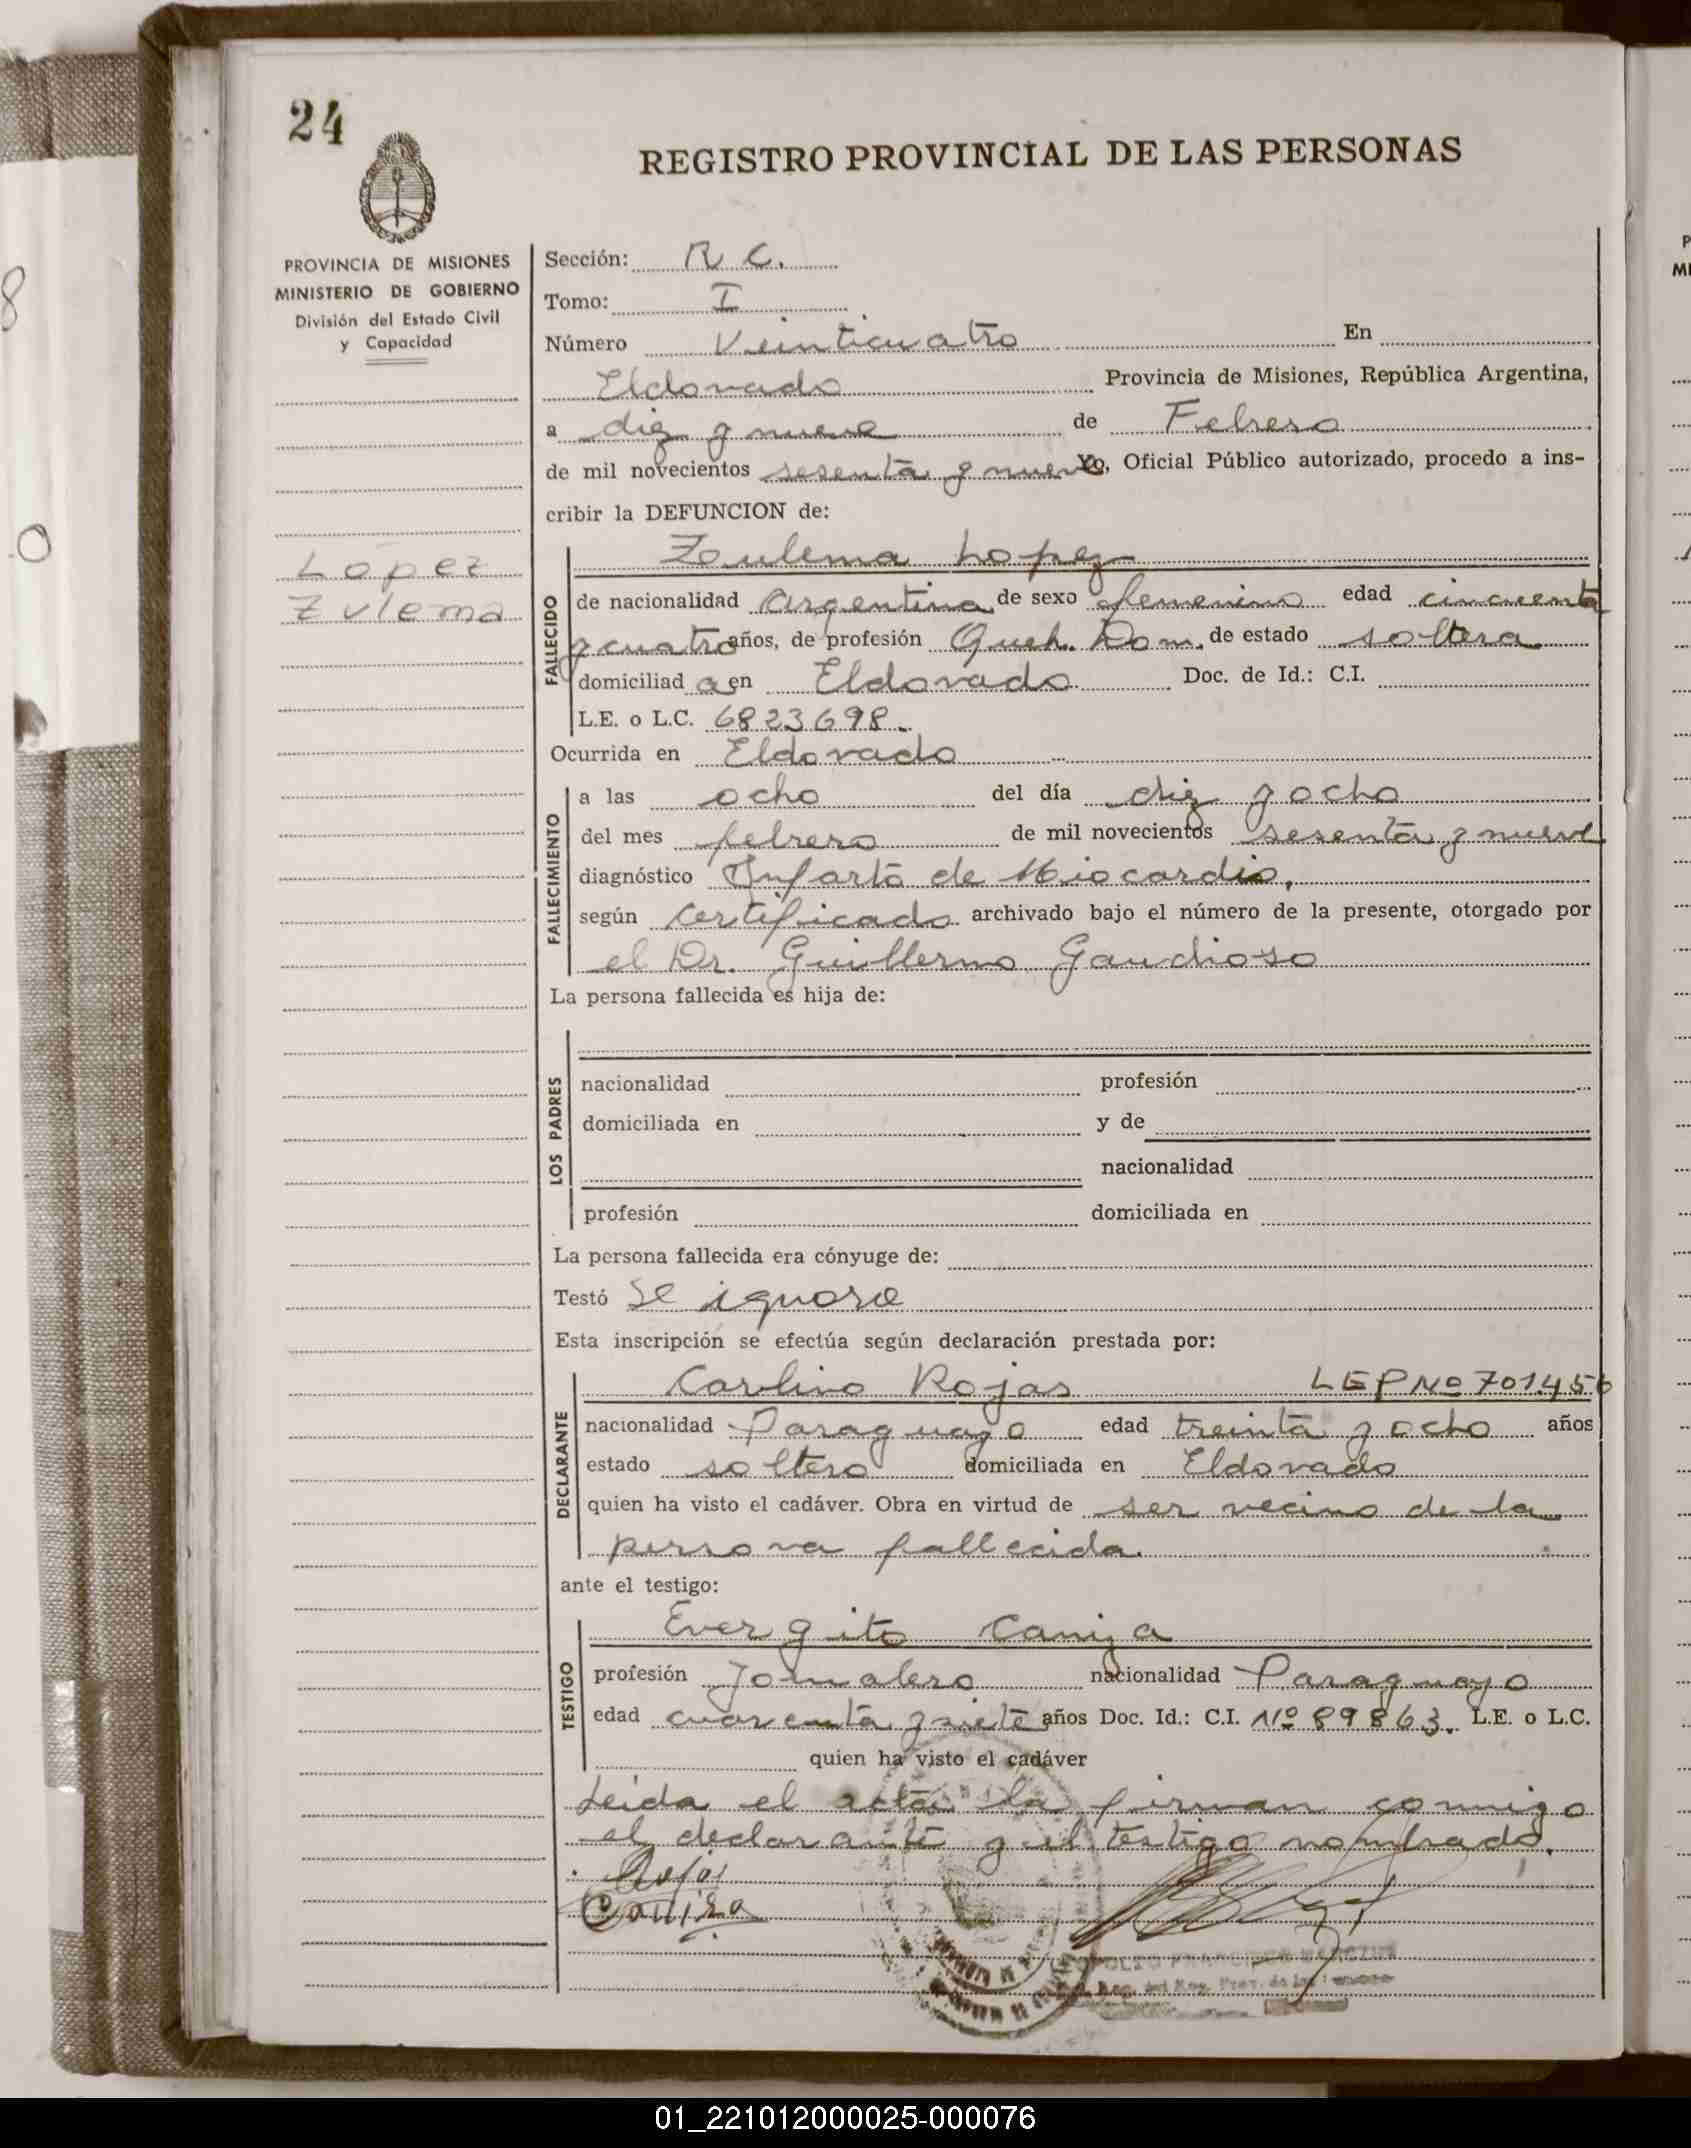 24
REGISTRO PROVINCIAL DE LAS PERSONAS
PROVINCIA DE MISIONES
MINISTERIO DE GOBIERNO
División del Estado Civil
y Capacidad
López
Zulema
Sección: R C.
Tomo: I
Número Veinticuatro En
Eldorado Provincia de Misiones, República Argentina,
a diez y nueve de Febrero
de mil novecientos sesenta y nueve Yo, Oficial Público autorizado, procedo a ins-
cribir la DEFUNCION de:
FALLECIDO
Zoulema Lopez
de nacionalidad Argentina de sexo femenino edad cincuenta
y cuatro años, de profesión Queh. Dom. de estado soltera
domiciliad a en Eldorado Doc. de Id.: C.I.
L.E. o L.C. 6823698.
Ocurrida en Eldorado
FALLECIMIENTO
a las ocho del día diez y ocho
del mes febrero de mil novecientos sesenta y nueve
diagnóstico Infarto de Miocardio,
según certificado archivado bajo el número de la presente, otorgado por
el Dr. Guillermo Gaudioso
La persona fallecida es hija de:
LOS PADRES
nacionalidad profesión
domiciliada en y de
nacionalidad
profesión domiciliada en
La persona fallecida era cónyuge de:
Testó Se ignora
Esta inscripción se efectúa según declaración prestada por:
DECLARANTE
Carlino Rojas LEP Nº 701.456
nacionalidad Paraguayo edad treinta y ocho años
estado soltero domiciliada en Eldorado
quien ha visto el cadáver. Obra en virtud de ser vecino de la
persona fallecida.
ante el testigo:
TESTIGO
Evergito Caniza
profesión Jornalero nacionalidad Paraguayo
edad cuarenta y siete años Doc. Id.: C.I. Nº 89863. L.E. o L.C.
quien ha visto el cadáver
Leida el acta la firman conmigo
el declarante y el testigo nombrado.
Rojas
Caniza
01_221012000025-000076